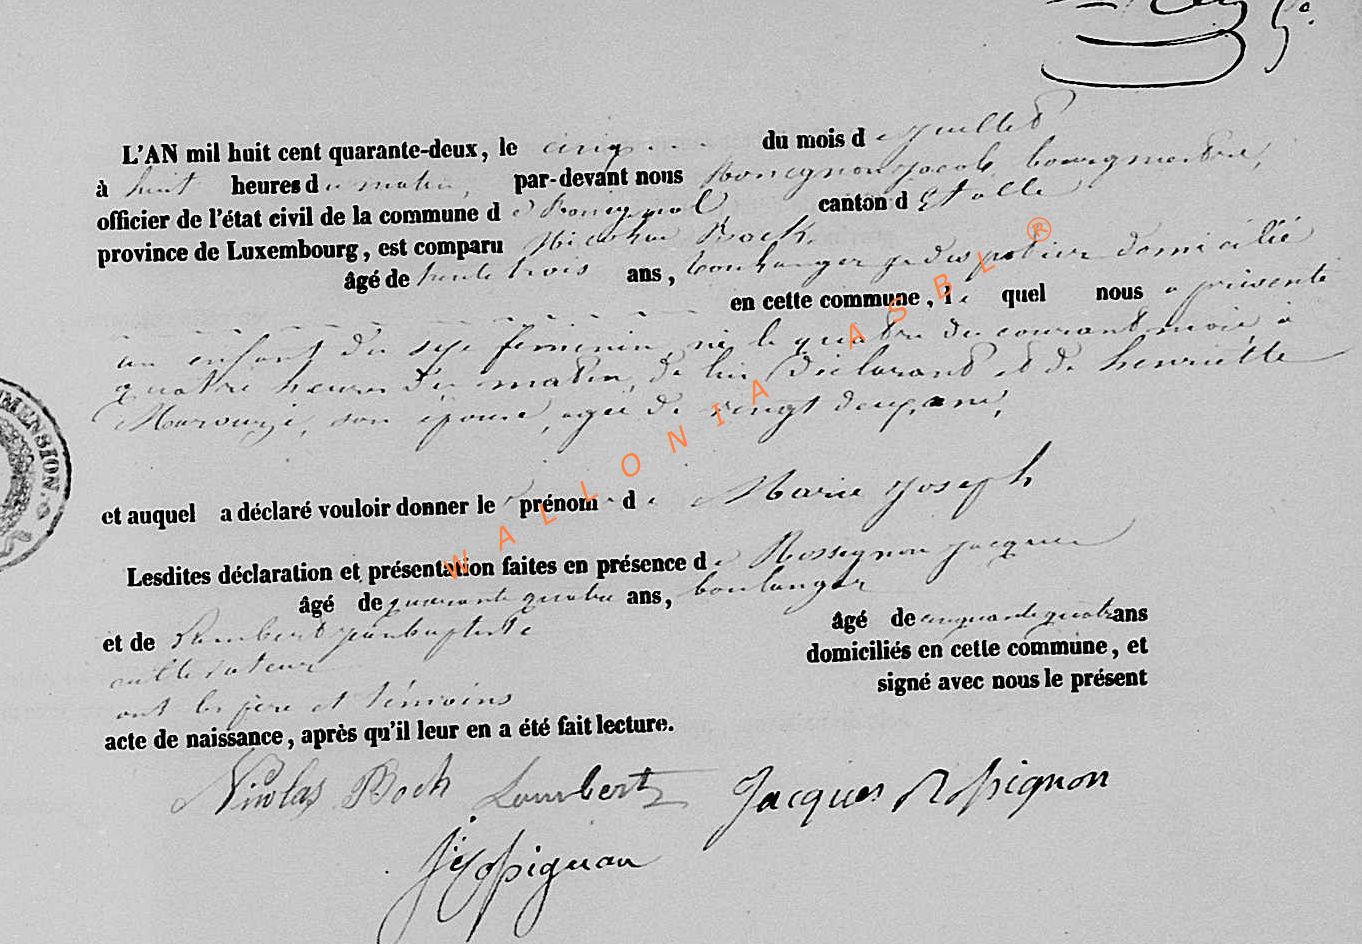 L'AN mil huit cent quarante-deux, le cinq du mois de Juillet
à huit heures du matin, par-devant nous Rossignon Jacob, bourgmestre,
officier de l'état civil de la commune de canton d'Etalle
province de Luxembourg, est comparu Nicolas Bock,
âgé de trente trois ans, boulanger domicilié
en cette commune, lequel nous a présenté
un enfant du sexe féminin, né le quatre du courant mois à
quatre heures du matin, de lui déclarant et de henriette
son épouse, agée de vingt deux ans,
et auquel a déclaré vouloir donner le prénom de Marie Joseph
Lesdites déclaration et présentation faites en présence de Rossignon Jacques
âgé de quarante quatre ans, boulanger
et de Lambert jean baptiste âgé de cinquante quatre ans
cultivateur domiciliés en cette commune, et
ont les père et témoins signé avec nous le présent
acte de naissance, après qu'il leur en a été fait lecture.
Nicolas Bock Lambert Jacques Rossignon
WALLONIA ASBL ®
MENSION.